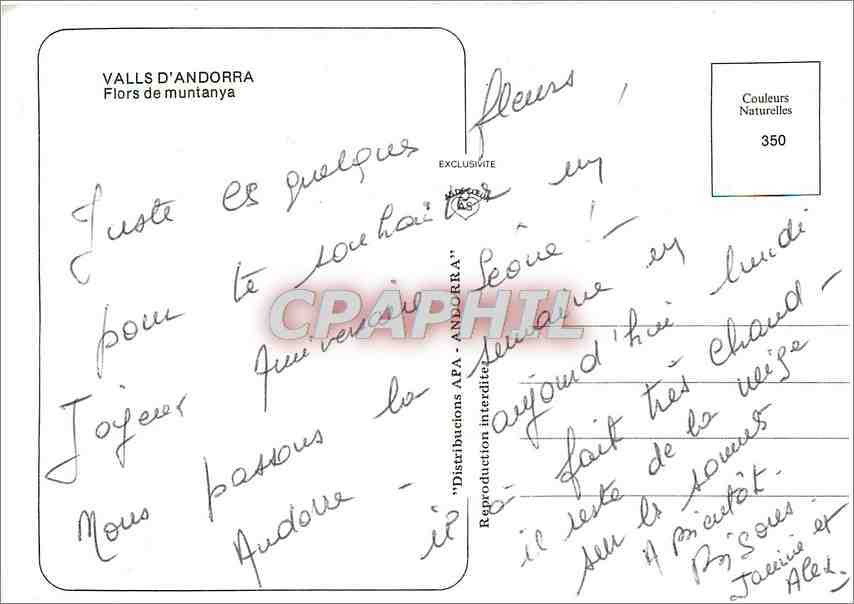 VALLS D'ANDORRA
Flors de muntanya
EXCLUSIVITE
"Distribucions APA - ANDORRA"
Reproduction interdite
Couleurs
Naturelles
350
CPAPHIL
Juste ces quelques fleurs,
pour te souhaiter un
Joyeux Anniversaire ! -
Nous passons la semaine en
Andorre - aujourd'hui lundi
il a fait très chaud -
il reste de la neige
sur les sommets
A bientôt -
Bisous.
Janine et
Alex.